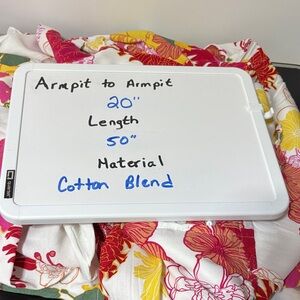 Armpit to Armpit
20"
Length
50"
Material
Cotton Blend